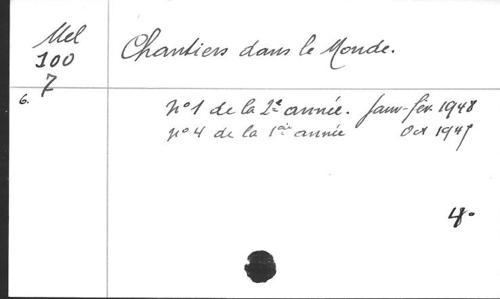 Mel
100
7
Chantiers dans le Monde.
6.
n° 1 de la 2e année. Janv-fév. 1948
n° 4 de la 1ère année Oct 1947
4°